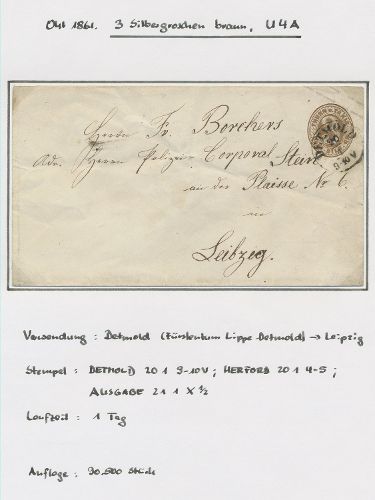 Okt 1861. 3 Silbergroschen braun, U4A
DETMOLD
20 1
9-10 V
Herrn Fr. Borchers
Adr. Herrn Polizei Corporal Stein
an der Plaisse Nr 6.
in
Leibzeg.
Verwendung : Detmold (Fürstentum Lippe-Detmold) → Leipzig
Stempel : DETMOLD 20 1 9-10V ; HERFORD 20 1 4-5 ;
AUSGABE 21 1 X ½
Laufzeit : 1 Tag
Auflage : 90.500 Stück